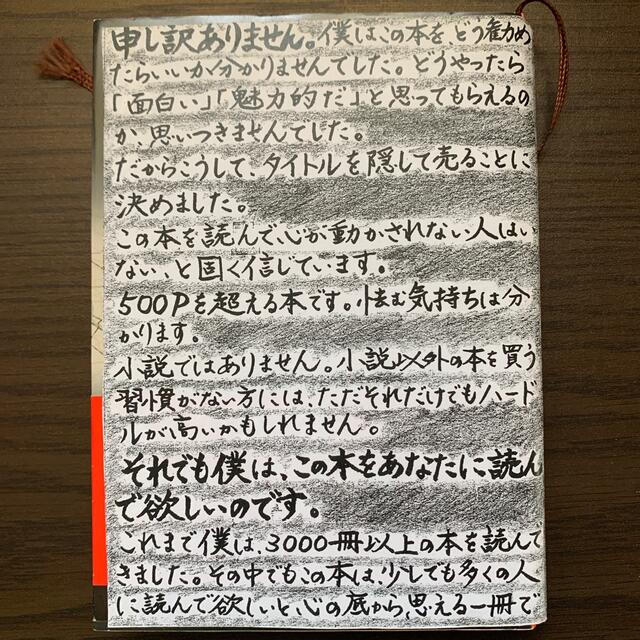 申し訳ありません。僕はこの本を、どう勧め
たらいいか分かりませんでした。どうやったら
「面白い」「魅力的だ」と思ってもらえるの
か、思いつきませんでした。
だからこうして、タイトルを隠して売ることに
決めました。
この本を読んで、心が動かされない人はい
ない、と固く信じています。
500Pを超える本です。怯む気持ちは分
かります。
小説ではありません。小説以外の本を買う
習慣がない方には、ただそれだけでもハード
ルが高いかもしれません。
それでも僕は、この本をあなたに読ん
で欲しいのです。
これまで僕は、3000冊以上の本を読んで
きました。その中でもこの本は、少しでも多くの人
に読んで欲しいと、心の底から思える一冊で